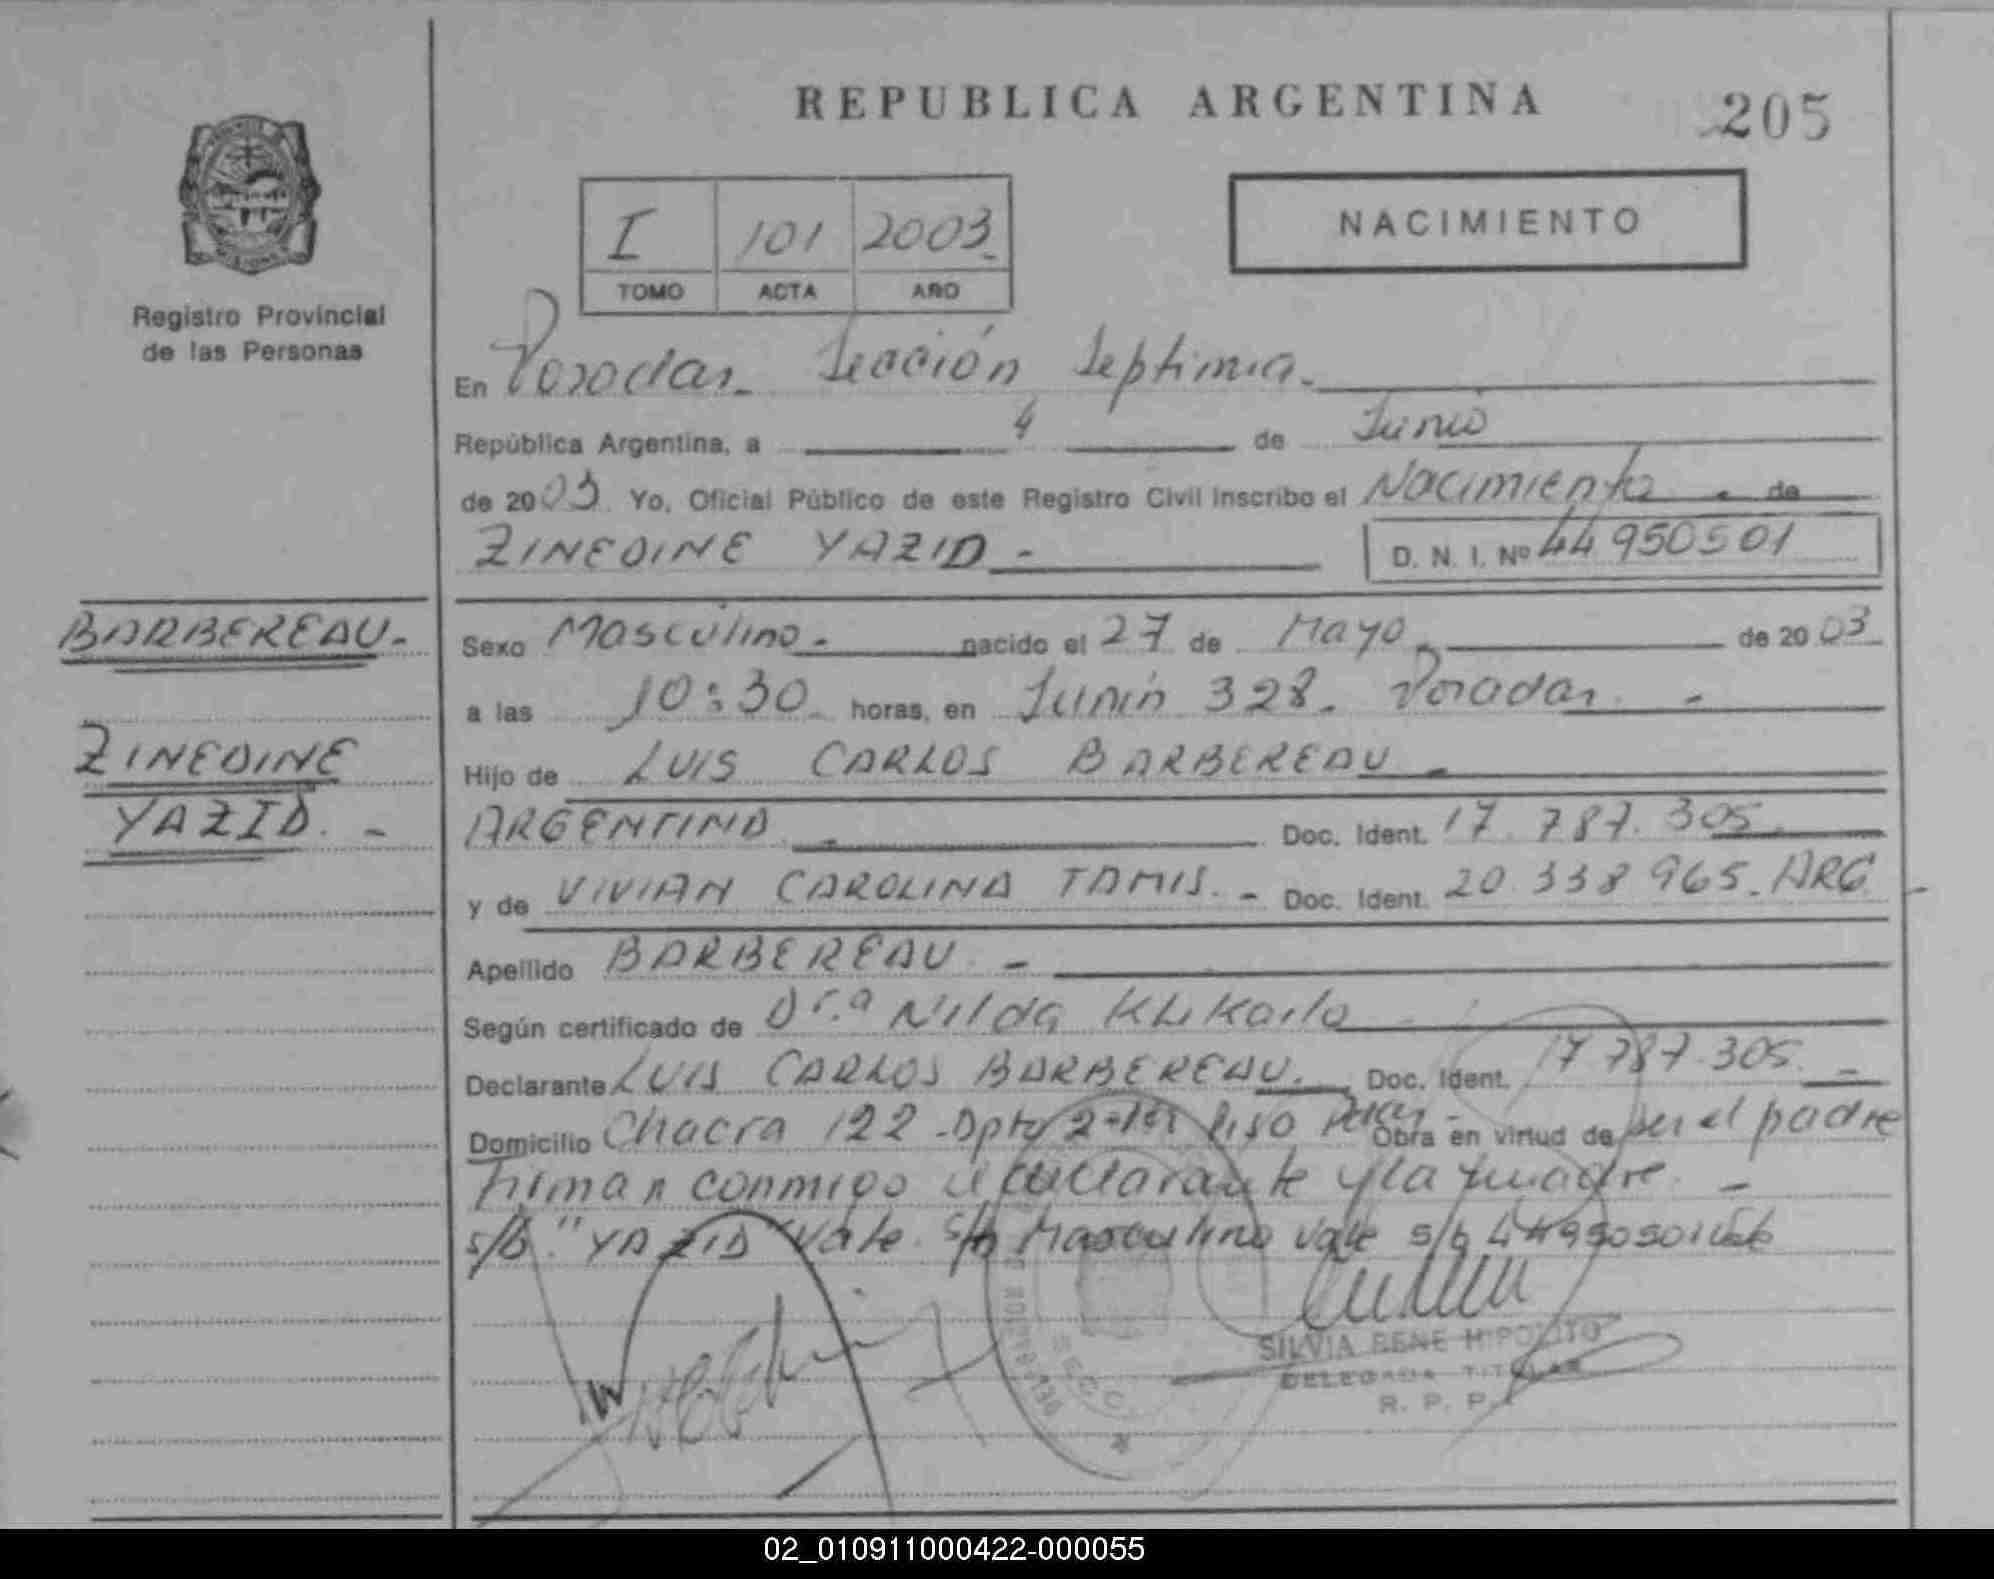 REPUBLICA ARGENTINA
205
I 101 2003
TOMO ACTA AÑO
NACIMIENTO
Registro Provincial
de las Personas
En Posadas Sección Septima
República Argentina, a 4 de Junio
de 2003 Yo, Oficial Público de este Registro Civil inscribo el Nacimiento de
ZINEDINE YAZID.-
D. N. I. Nº 44950501
BARBEREAU.
ZINEDINE
YAZID.-
Sexo Masculino.- nacido el 27 de Mayo de 2003
a las 10:30 horas, en Junín 328. Posadas.-
Hijo de LUIS CARLOS BARBEREAU.-
ARGENTINA.- Doc. Ident. 17.787.305.
y de VIVIAN CAROLINA TAMIS.- Doc. Ident. 20.338 965. ARG
Apellido BARBEREAU.-
Según certificado de Dr.a Nilda
Declarante LUIS CARLOS BARBEREAU. Doc. Ident. 17.787.305.-
Domicilio Chacra 122 -Dpto 2- Piso Obra en virtud de ser el padre
firman conmigo el declarante y la madre.-
s/b "YAZID" Vale. s/b Masculino vale s/b 44950501 vale
SILVIA RENE HIPOLITO
DELEGADA TITULAR
R. P. P.
SECC.
02_010911000422-000055